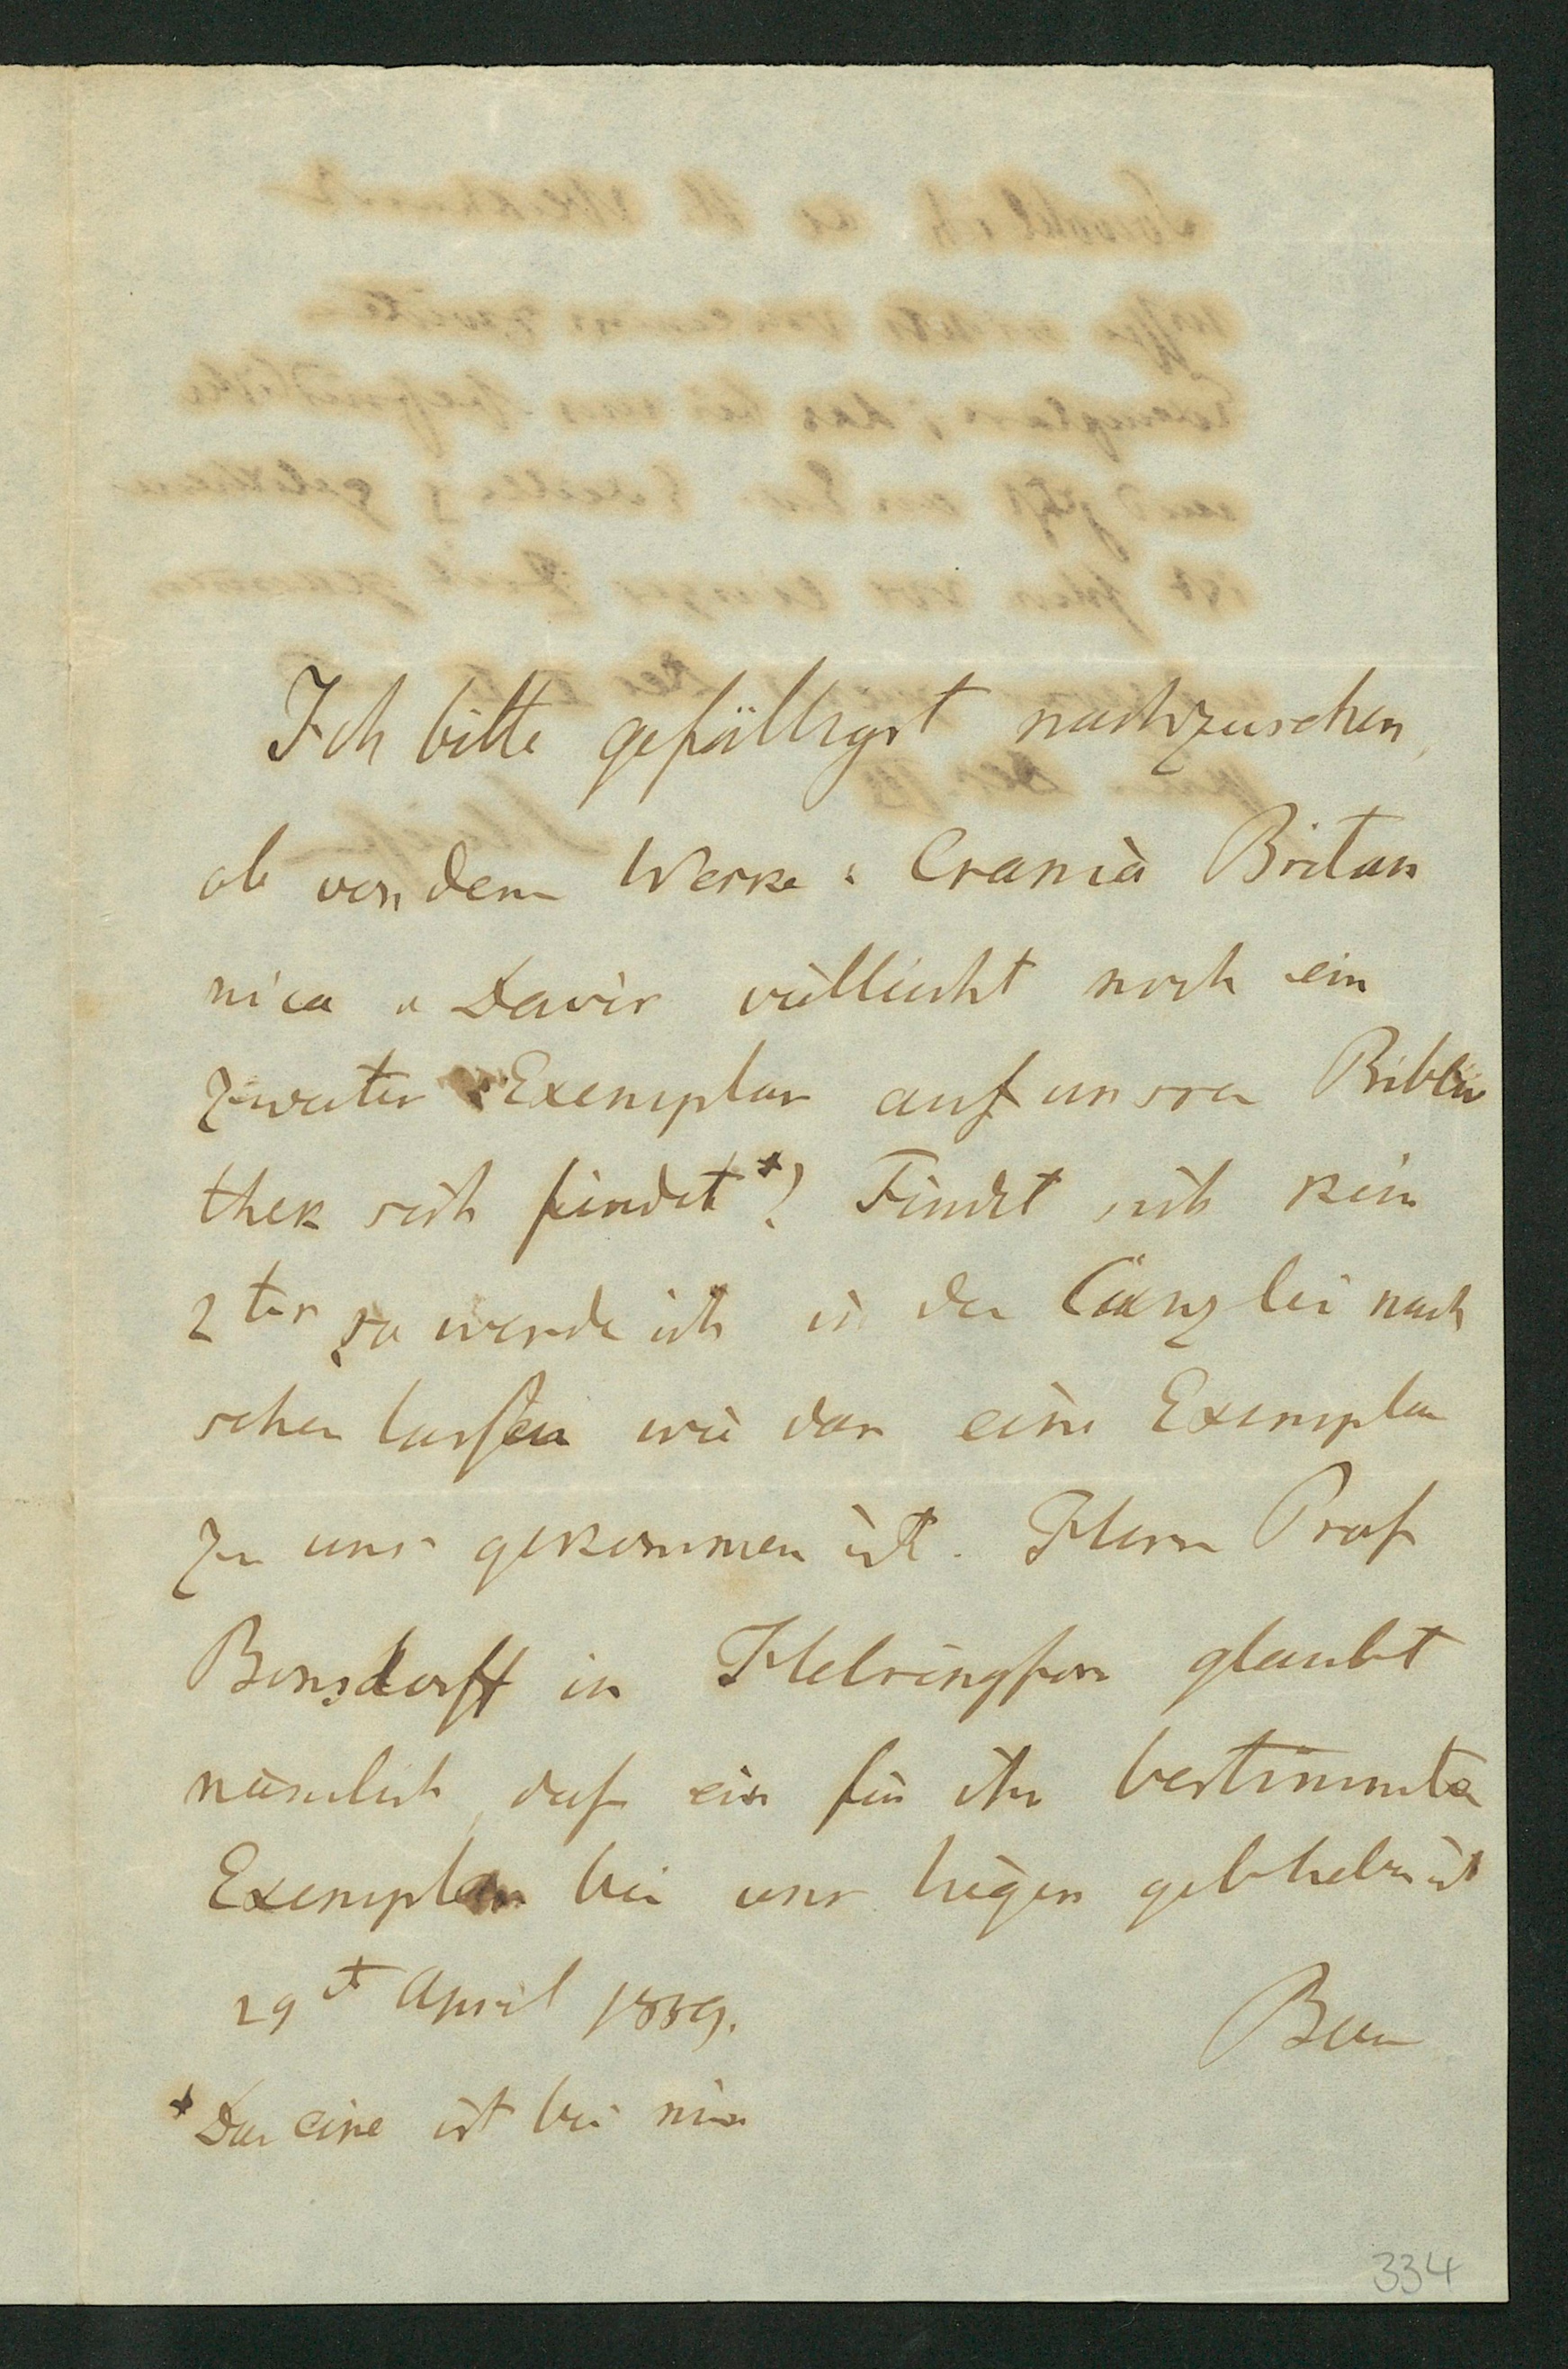 Ich bitte gefälligst nachzusehen,
ob von dem Werke: Crania Britan
nica v Davis vielleicht noch ein
zweites Exemplar auf unsrer Biblio
thek sich findet*? Findet sich kein
2tes so werde ich in der Canzlei nach
sehen lassen wie das eine Exemplar
zu uns gekommen ist. Herr Prof
Bonsdorff in Helsingfors glaubt
nämlich, daß ein für ihn bestimmtes
Exemplar bei uns liegen geblieben ist
29st April 1859.
Baer
*Das eine ist bei mir
334